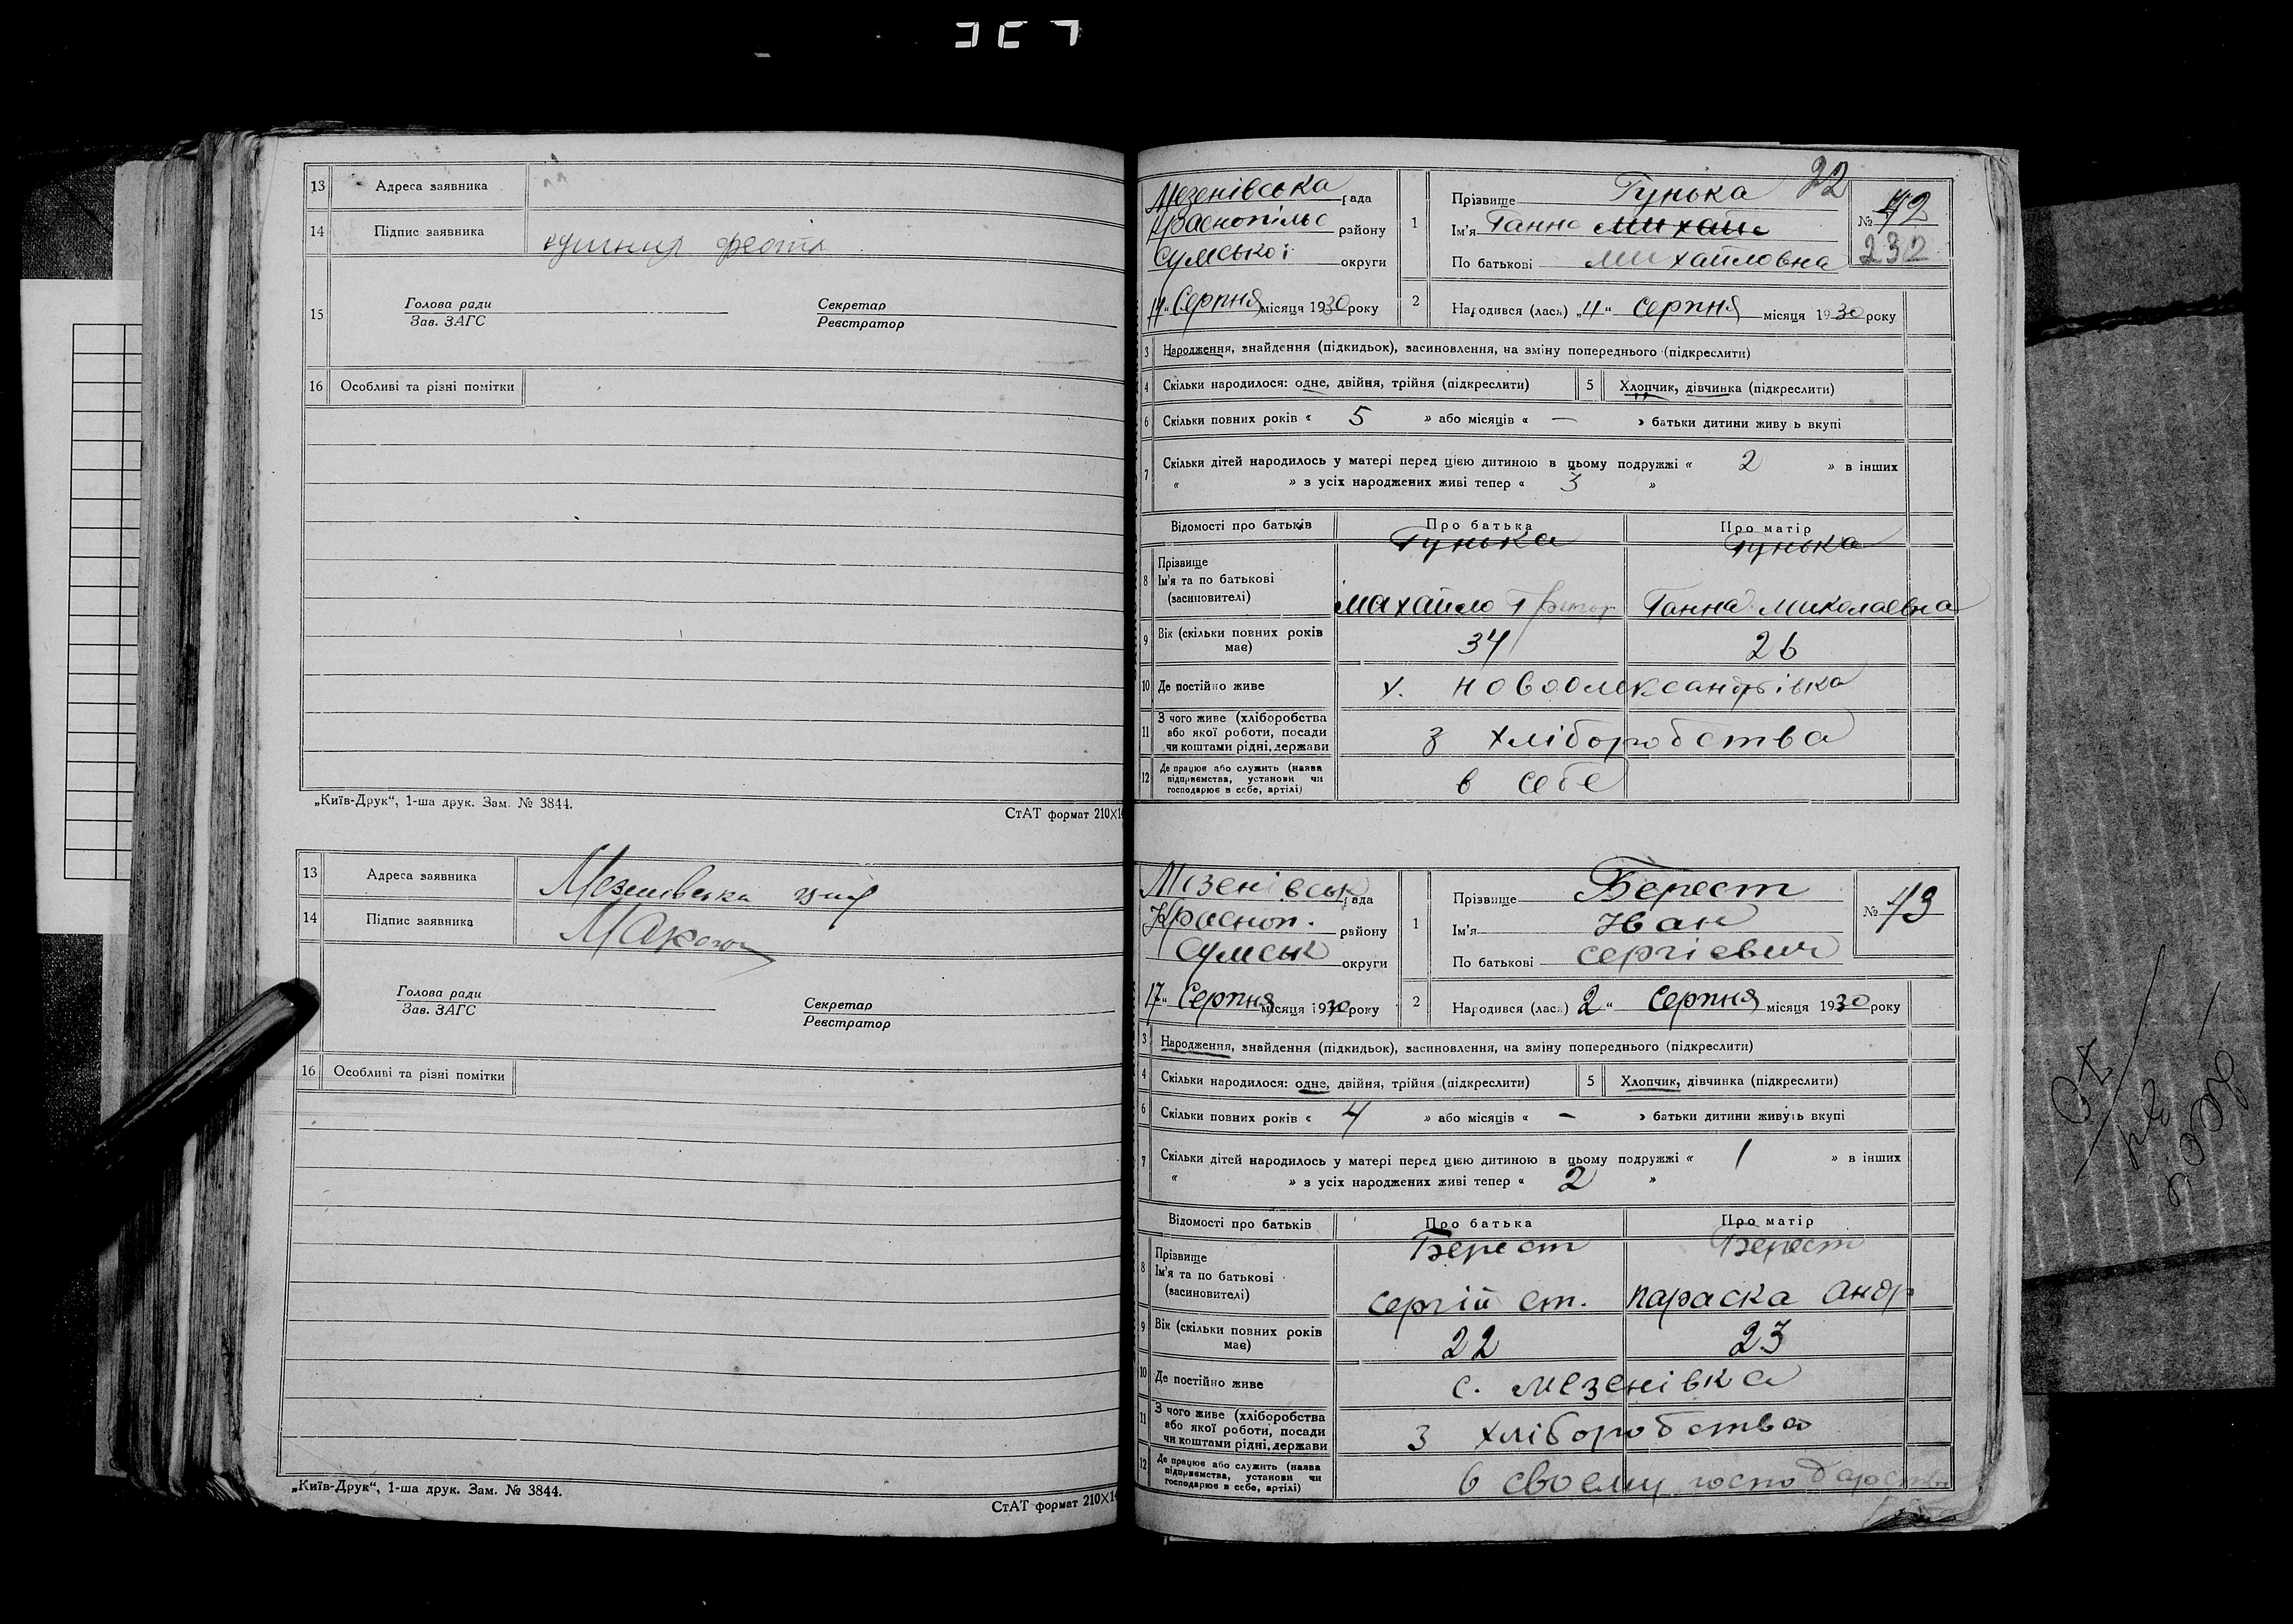 13 Адреса заявника
14 Підпис заявника
15 Голова ради Секретар
Зав. ЗАГС Реєстратор
16 Особливі та різні помітки
„Київ-Друк“, 1-ша друк. Зам. № 3844.
СтАТ формат 210×14
13 Адреса заявника Мезенівська
14 Підпис заявника
Голова ради Секретар
Зав. ЗАГС Реєстратор
16 Особливі та різні помітки
„Київ-Друк“, 1-ша друк. Зам. № 3844.
СтАТ формат 210×14
22
Мезенівська рада
Краснопільс району
Сумської округи
Серпня місяця 1930 року
1 Прізвище Гунька
Ім'я Ганна Михайл
По батькові Михайловна
№ 72
232
2 Народився (лась) „4“ Серпня місяця 1930 року
3 Народження, знайдення (підкидьок), засиновлення, на зміну попереднього (підкреслити)
4 Скільки народилося: одне, двійня, трійня (підкреслити) 5 Хлопчик, дівчинка (підкреслити)
6 Скільки повних років « 5 » або місяців « — » батьки дитини живу ь вкупі
7 Скільки дітей народилось у матері перед цією дитиною в цьому подружжі « 2 » в інших
« » з усіх народжених живі тепер « 3 »
Відомості про батьків Про батька Про матір
Гунька Гунька
8 Прізвище
Ім'я та по батькові
(засиновителі) Михайло Григор Ганна Миколаєвна
9 Вік (скільки повних років має) 34 26
10 Де постійно живе х. Новоолександрівка
11 З чого живе (хліборобства
або якої роботи, посади
чи коштами рідні, держави з хліборобства
12 Де працює або служить (назва
підприємства, установи чи
господарює в себе, артілі) в себе
Мезенівськ рада
Красноп. району
Сумськ округи
17“ Серпня місяця 1930 року
1 Прізвище Берест
Ім'я Іван
По батькові Сергієвич
№ 73
2 Народився (лась) 2“ Серпня місяця 1930 року
3 Народження, знайдення (підкидьок), засиновлення, на зміну попереднього (підкреслити)
4 Скільки народилося: одне, двійня, трійня (підкреслити) 5 Хлопчик, дівчинка (підкреслити)
6 Скільки повних років « 4 » або місяців « – » батьки дитини живуть вкупі
7 Скільки дітей народилось у матері перед цією дитиною в цьому подружжі « 1 » в інших
« » з усіх народжених живі тепер « 2 »
Відомості про батьків Про батька Про матір
Берест Берест
8 Прізвище
Ім'я та по батькові
(засиновителі) Сергій Ст. Параска Андр
9 Вік (скільки повних років має) 22 23
10 Де постійно живе с. Мезенівка
11 З чого живе (хліборобства
або якої роботи, посади
чи коштами рідні, держави з хліборобства
12 Де працює або служить (назва
підприємства, установи чи
господарює в себе, артілі) в своєму господарстві